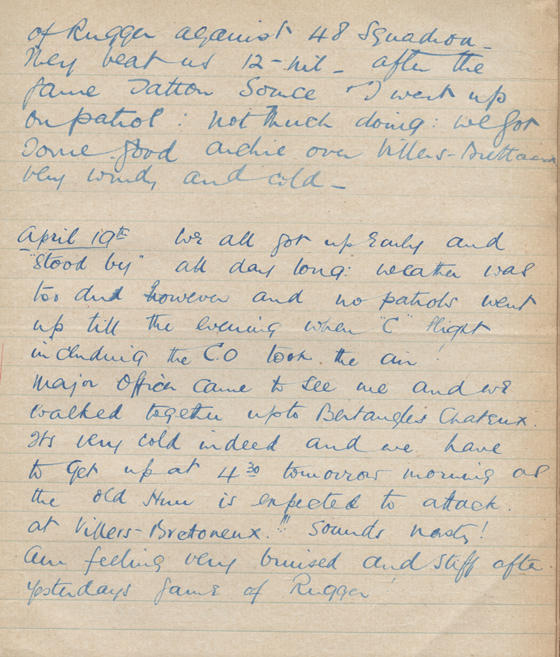 of Rugger against 48 Squadron –
They beat us 12-nil – after the
game Tatton Souce & I went up
on patrol : not much doing : we got
Some good archie over Villers-Brettoneux
very windy and cold –
April 19th We all got up Early and
"Stood by" all day long : weather was
too dud however and no patrols went
up till the evening when "C" flight
including the C.O took the air
Major Officer came to see me and we
walked together upto Bertangles Chateux.
Its very cold indeed and we have
to get up at 4 30 tomorrow morning as
the old Hun is expected to attack.
at Villers-Bretoneux.!!! Sounds nasty!
Am feeling very bruised and stiff after
yesterdays game of Rugger!